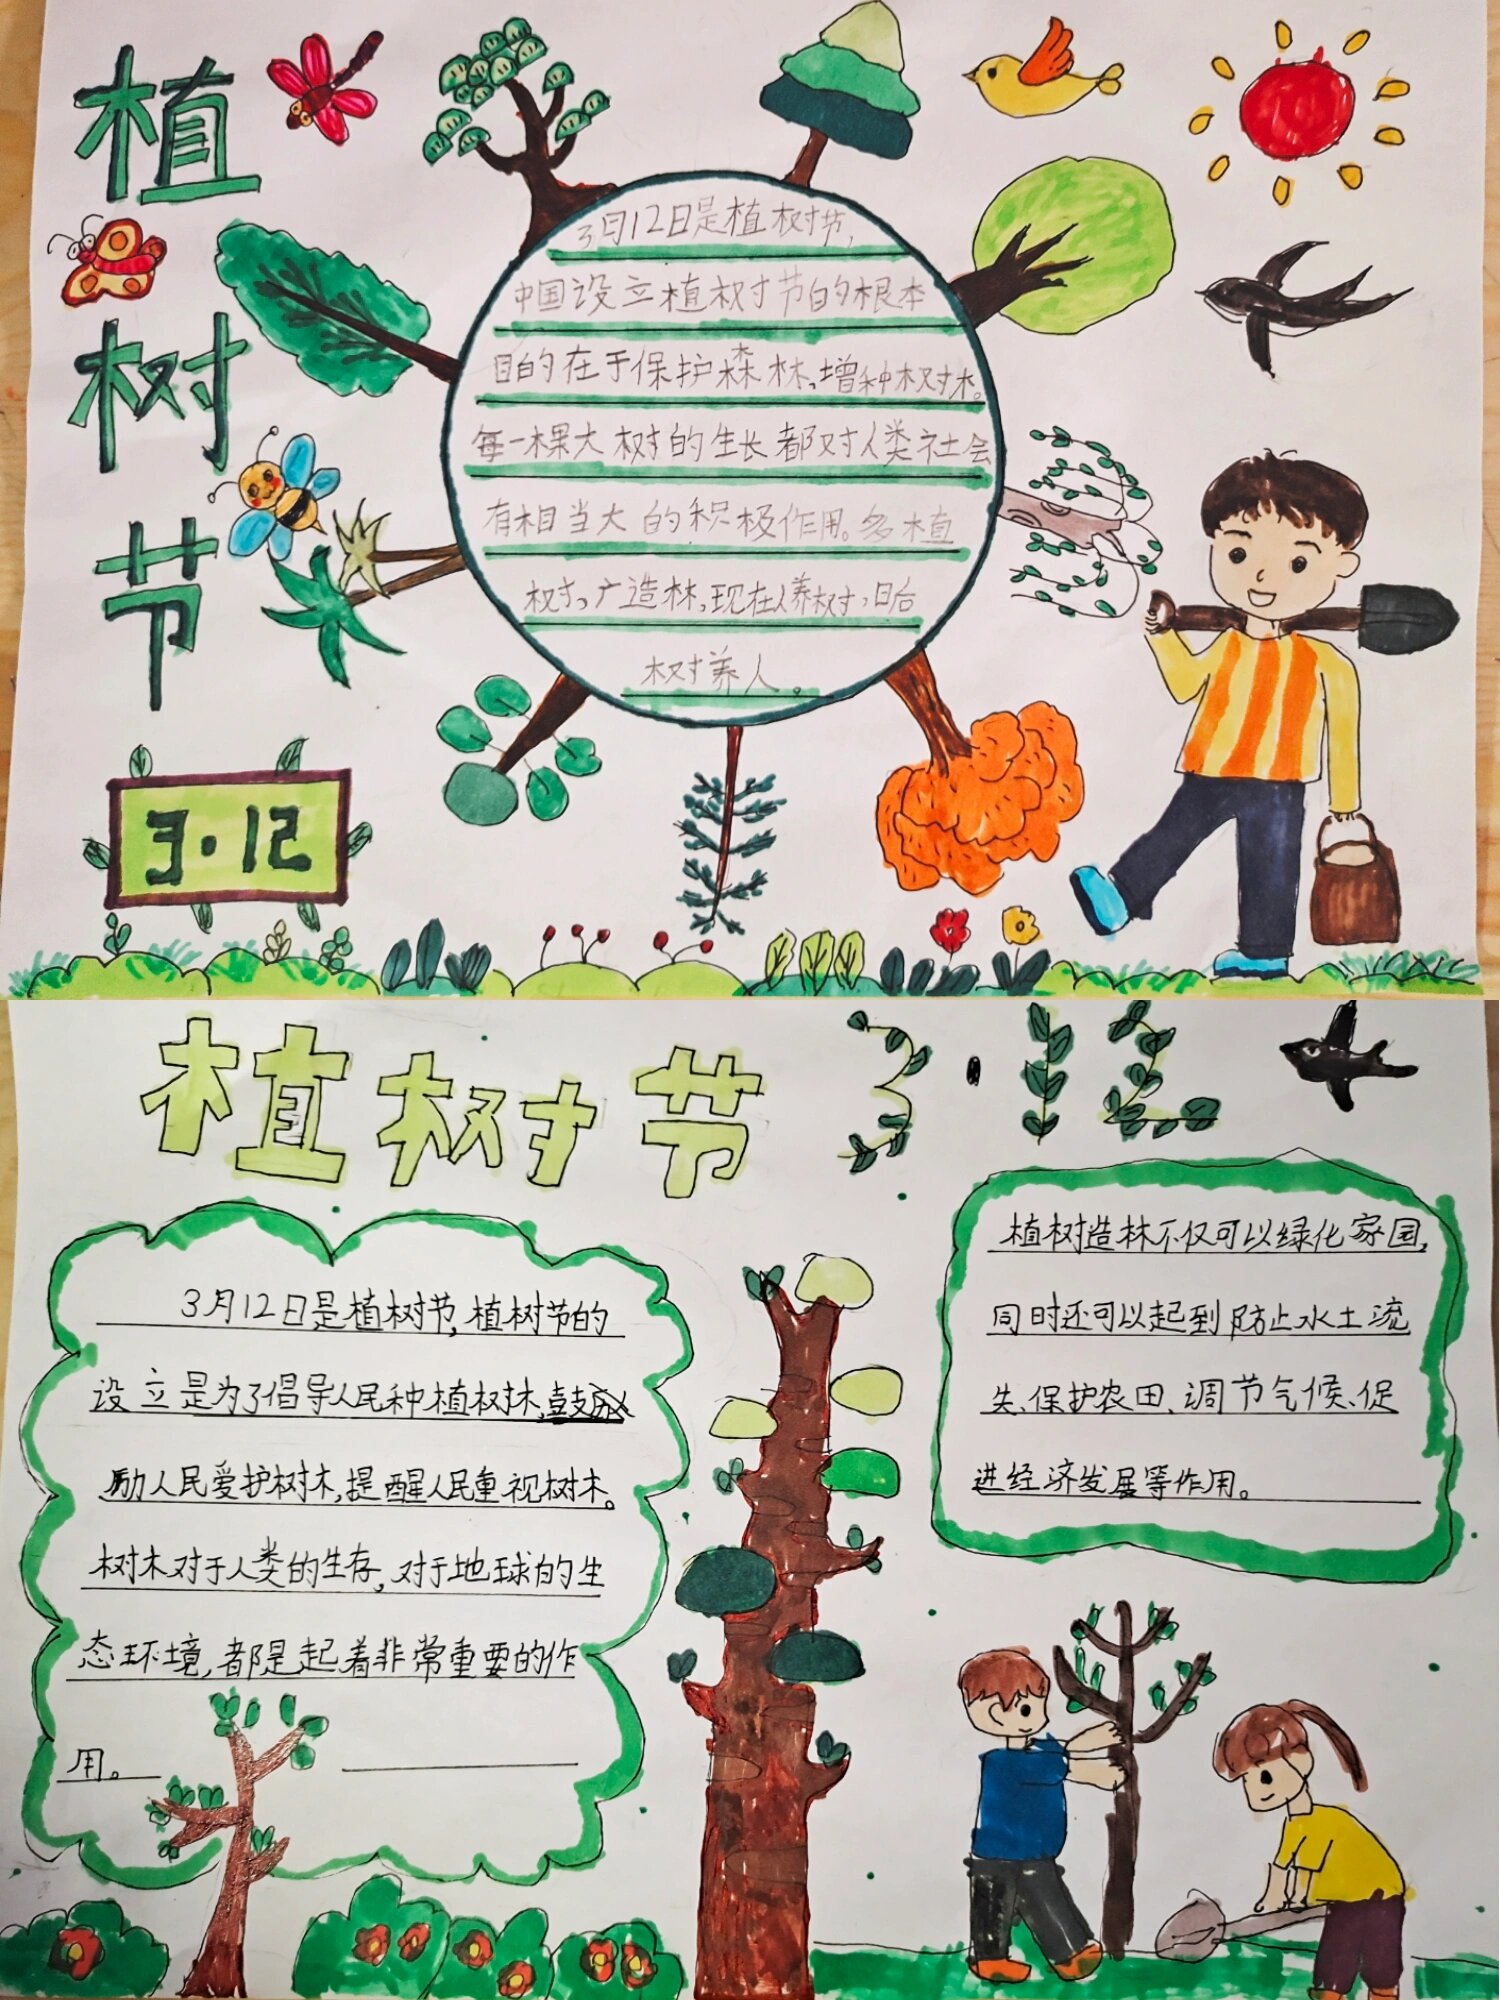 植树节
3月12日是植树节,
中国设立植树节的根本
目的在于保护森林,增种树木。
每一棵大树的生长都对人类社会
有相当大的积极作用。多植
树,广造林,现在人养树,日后
树养人。
3·12
植树节 3·12
3月12日是植树节,植树节的
设立是为了倡导人民种植树木,鼓
励人民爱护树木,提醒人民重视树木。
树木对于人类的生存,对于地球的生
态环境,都是起着非常重要的作
用。
植树造林不仅可以绿化家园,
同时还可以起到防止水土流
失、保护农田、调节气候、促
进经济发展等作用。